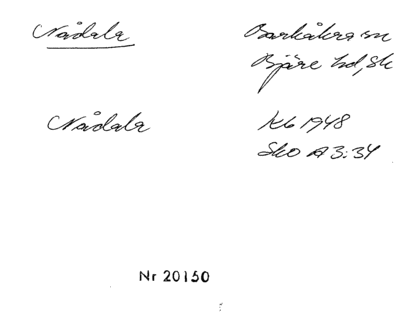 Nådala Barkåkra sn
Bjäre hd, Sk
Nådala Kb 1948
SkO A3:34
Nr 20150